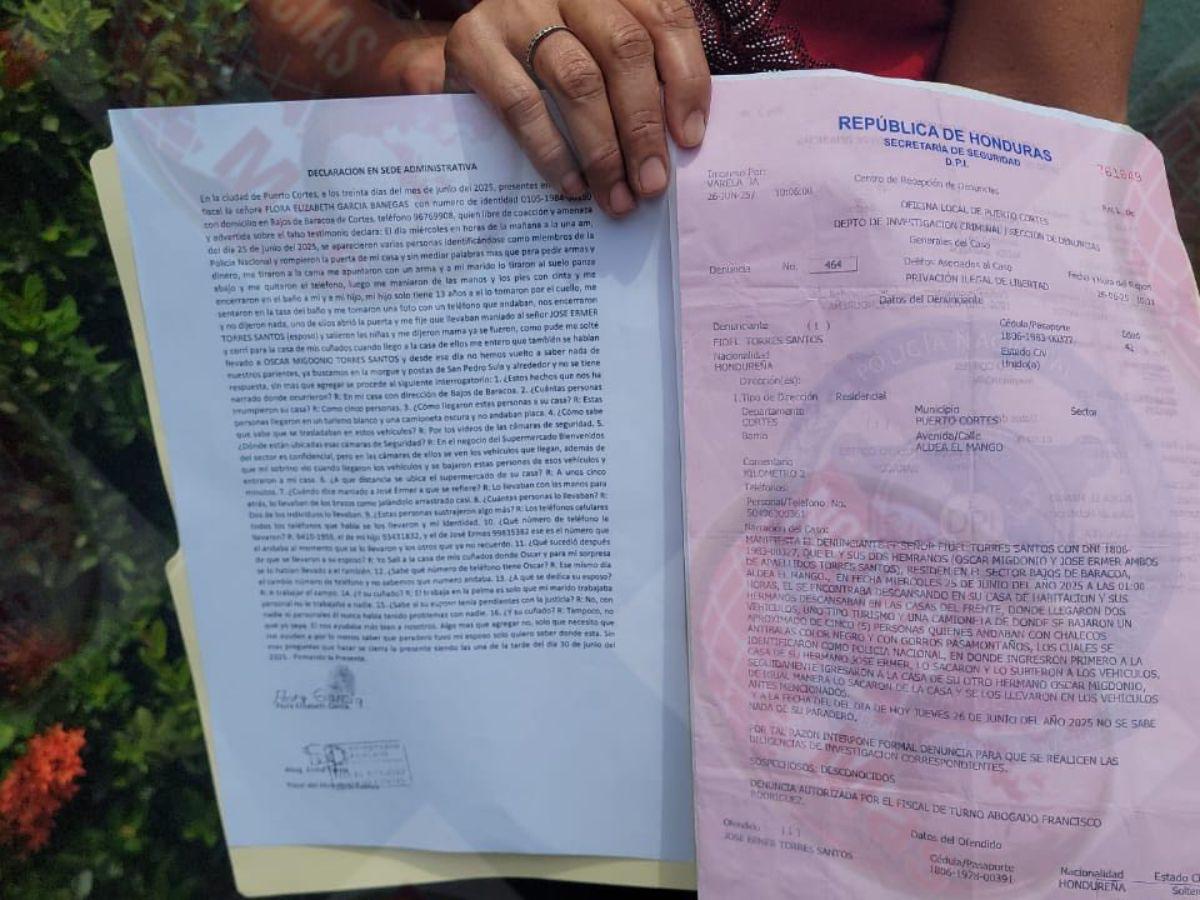 DECLARACION EN SEDE ADMINISTRATIVA
En la ciudad de Puerto Cortes, a los treinta días del mes de junio del 2025, presentes en
fiscal la señora FLORA ELIZABETH GARCIA BANEGAS con numero de identidad 0105-1984-
con domicilio en Bajos de Baracoa de Cortes, teléfono 96769908, quien libre de coacción y amenaza
y advertida sobre el falso testimonio declara: El día miércoles en horas de la mañana a la una am,
del día 25 de junio del 2025, se aparecieron varias personas identificándose como miembros de la
Policía Nacional y rompieron la puerta de mi casa y sin mediar palabras mas que para pedir armas y
dinero, me tiraron a la cama me apuntaron con un arma y a mi marido lo tiraron al suelo panza
abajo y me quitaron el telefono, luego me maniaron de las manos y los pies con cinta y me
encerraron en el baño a mi y a mi hijo, mi hijo solo tiene 13 años a el lo tomaron por el cuello, me
sentaron en la tasa del baño y me tomaron una foto con un teléfono que andaban, nos encerraron
y no dijeron nada, uno de ellos abrió la puerta y me fije que llevaban maniado al señor JOSE ERMER
TORRES SANTOS (esposo) y salieron las niñas y me dijeron mama ya se fueron, como pude me solté
y corrí para la casa de mis cuñados cuando llego a la casa de ellos me entero que también se habían
llevado a OSCAR MIGDONIO TORRES SANTOS y desde ese día no hemos vuelto a saber nada de
nuestros parientes, ya buscamos en la morgue y postas de San Pedro Sula y alrededor y no se tiene
respuesta, sin mas que agregar se procede al siguiente interrogatorio: 1. ¿Estos hechos que nos ha
narrado donde ocurrieron? R: En mi casa con dirección de Bajos de Baracoa. 2. ¿Cuántas personas
irrumpieron su casa? R: Como cinco personas. 3. ¿Cómo llegaron estas personas a su casa? R: Estas
personas llegaron en un turismo blanco y una camioneta oscura y no andaban placa. 4. ¿Cómo sabe
que sabe que se trasladaban en estos vehículos? R: Por los videos de las cámaras de seguridad. 5.
¿Dónde están ubicadas esas cámaras de Seguridad? R: En el negocio del Supermercado Bienvenidos
del sector es confidencial, pero en las cámaras de ellos se ven los vehículos que llegan, además de
que mi sobrino vio cuando llegaron los vehículos y se bajaron estas personas de esos vehículos y
entraron a mi casa. 6. ¿A que distancia se ubica el supermercado de su casa? R: A unos cinco
minutos. 7. ¿Cuándo dice maniado a José Ermer a que se refiere? R: Lo llevaban con las manos para
atrás, lo llevaban de los brazos como jalándolo arrastrado casi. 8. ¿Cuántas personas lo llevaban? R:
Dos de los individuos lo llevaban. 9. ¿Estas personas sustrajeron algo más? R: Los teléfonos celulares
todos los teléfonos que había se los llevaron y mi identidad. 10. ¿Qué número de teléfono le
llevaron? R. el de mi hijo y el de José Ermer 99815382 ese es el número que
el andaba al momento que se lo llevaron y los otros que ya no recuerdo. 11. ¿Qué sucedió después
de que se llevaron a su esposo? R: Yo Salí a la casa de mis cuñados donde Oscar y para mi sorpresa
se lo habían llevado a el también. 12. ¿Sabe qué número de teléfono tiene Oscar? R: Ese mismo día
el cambio número de teléfono y no sabemos que numero andaba. 13. ¿A que se dedica su esposo?
R: A trabajar el campo. 14. ¿Y su cuñado? R: El trabaja en la palma es solo que mi marido trabajaba
personal no le trabajaba a nadie. 15. ¿Sabe si su esposo tenía pendientes con la justicia? R: No, con
nadie ni personales él nunca había tenido problemas con nadie. 16. ¿Y su cuñado? R: Tampoco, no
que yo sepa. El nos ayudaba más bien a nosotros. Algo mas que agregar: no, solo que necesito que
me ayuden a por lo menos saber que paradero tuvo mi esposo solo quiero saber donde esta. Sin
mas preguntas que hacer se cierra la presente siendo las una de la tarde del día 30 de junio del
2025 .- Firmando la Presente.
Flora Elizabeth Garcia
REPÚBLICA DE HONDURAS
SECRETARÍA DE SEGURIDAD
D.P.I.
761849
Ingreso Por:
VARELA JA
26-JUN-25/ 10:06:00
Centro de Recepción de Denuncias
OFICINA LOCAL DE PUERTO CORTES
DEPTO DE INVESTIGACION CRIMINAL / SECCIÓN DE DENUNCIAS
Generales del Caso
Denuncia No. 464
Delitos Asociados al Caso
PRIVACIÓN ILEGAL DE LIBERTAD
Fecha y Hora del Report
26-06-25 10:11
Datos del Denunciante
Denunciante ( 1 )
FIDEL TORRES SANTOS
Cédula/Pasaporte
1806-1983-00327
Edad
Nacionalidad
HONDUREÑA
Estado Civ
Unido(a)
Dirección(es):
1.Tipo de Dirección Residencial
Departamento
CORTES
Municipio
PUERTO CORTES
Sector
Barrio
Avenida/Calle
ALDEA EL MANGO
Comentario
KILOMETRO 2
Teléfonos:
Personal/Telefono No.
Narración del Caso:
MANIFIESTA EL DENUNCIANTE EL SEÑOR FIDEL TORRES SANTOS CON DNI 1806-
1983-00327, QUE EL Y SUS DOS HEMRANOS (OSCAR MIGDONIO Y JOSE ERMER AMBOS
DE APELLIDOS TORRES SANTOS), RESIDEN EN EL SECTOR BAJOS DE BARACOA,
ALDEA EL MANGO., EN FECHA MIERCOLES 25 DE JUNIO DEL AÑO 2025 A LAS 01:00
HORAS, EL SE ENCONTRABA DESCANSANDO EN SU CASA DE HABITACION Y SUS
HERMANOS DESCANSABAN EN LAS CASAS DEL FRENTE, DONDE LLEGARON DOS
VEHICULOS, UNO TIPO TURISMO Y UNA CAMIONETA DE DONDE SE BAJARON UN
APROXIMADO DE CINCO (5) PERSONAS QUIENES ANDABAN CON CHALECOS
ANTIBALAS COLOR NEGRO Y CON GORROS PASAMONTAÑOS, LOS CUALES SE
IDENTIFICARON COMO POLICIA NACIONAL, EN DONDE INGRESRON PRIMERO A LA
CASA DE SU HERMANO JOSE ERMER, LO SACARON Y LO SUBIERON A LOS VEHICULOS,
SEGUIDAMENTE IGRESARON A LA CASA DE SU OTRO HERMANO OSCAR MIGDONIO,
DE IGUAL MANERA LO SACARON DE LA CASA Y SE LOS LLEVARON EN LOS VEHICULOS
ANTES MENCIONADOS.
Y A LA FECHA DEL DEL DIA DE HOY JUEVES 26 DE JUNIO DEL AÑO 2025 NO SE SABE
NADA DE SU PARADERO.
POR TAL RAZON INTERPONE FORMAL DENUNCIA PARA QUE SE REALICEN LAS
DILIGENCIAS DE INVESTIGACION CORRESPONDIENTES.
SOSPECHOSOS: DESCONOCIDOS
DENUNCIA AUTORIZADA POR EL FISCAL DE TURNO ABOGADO FRANCISCO
RODRIGUEZ.
Datos del Ofendido
Ofendido ( 1 )
JOSE ERMER TORRES SANTOS
Cédula/Pasaporte
1806-1978-00391
Nacionalidad
HONDUREÑA
Estado Ci
Solter